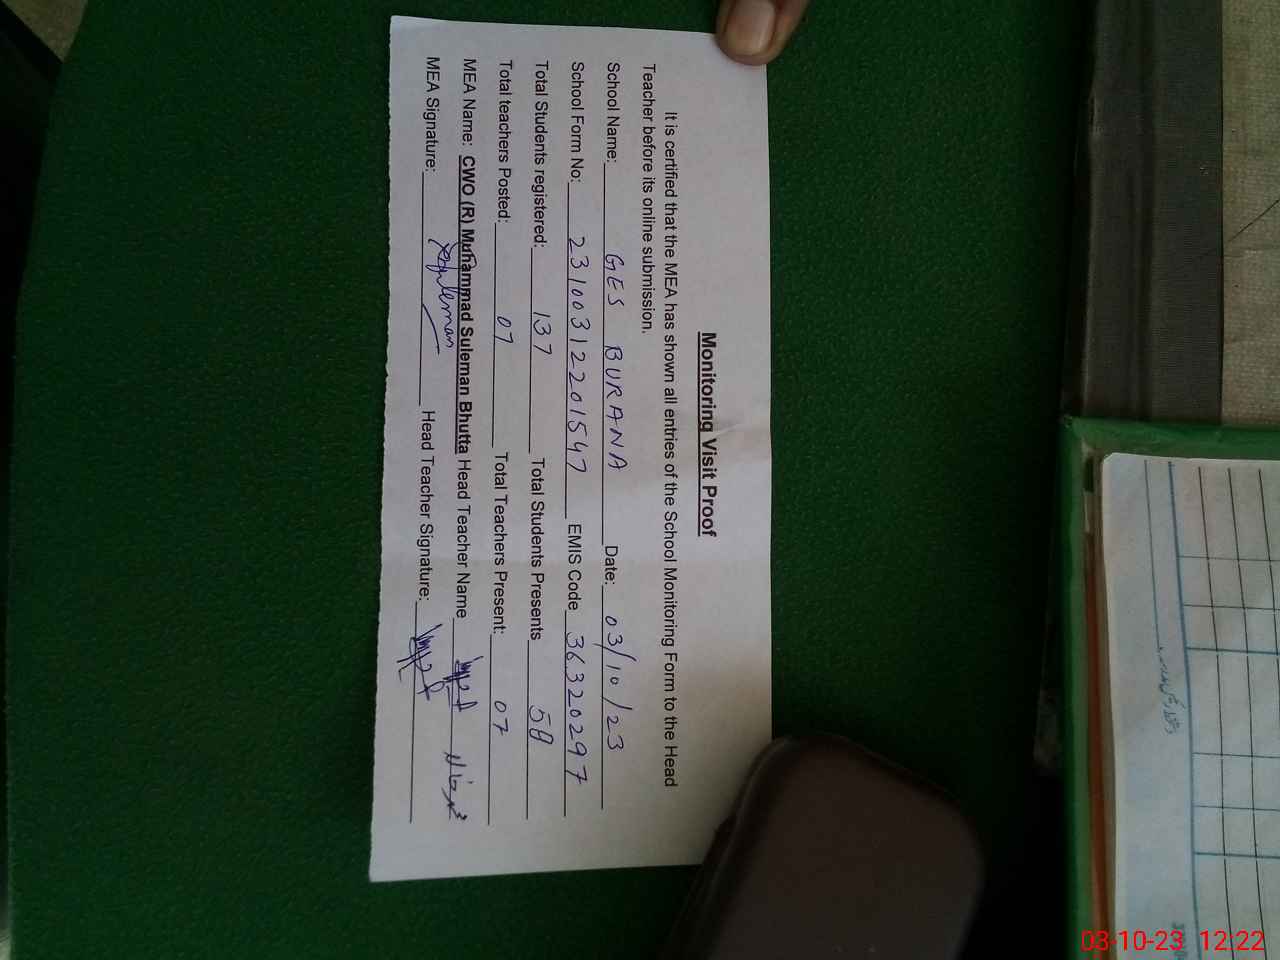 Monitoring Visit Proof
It is certified that the MEA has shown all entries of the School Monitoring Form to the Head
Teacher before its online submission.
School Name: GES BURANA Date: 03/10/23
School Form No: 231003122201547 EMIS Code 36320297
Total Students registered: 137 Total Students Presents 58
Total teachers Posted: 07 Total Teachers Present: 07
MEA Name: CWO (R) Muhammad Suleman Bhutta Head Teacher Name
MEA Signature: Head Teacher Signature:
03-10-23 12:22